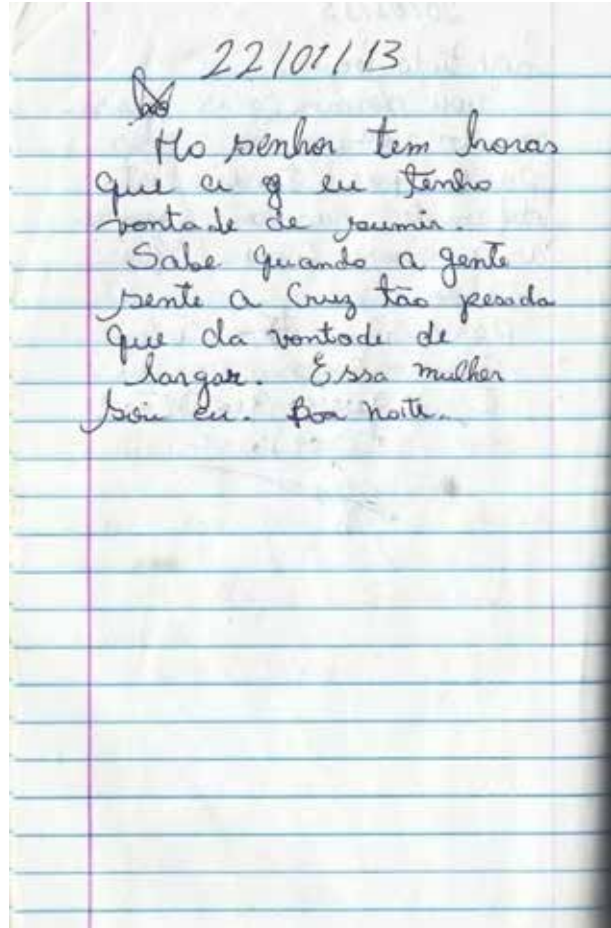 22/01/13
Ho senhor tem horas
que eu tenho
vontade de sumir.
Sabe quando a gente
sente a Cruz tão pesada
que da vontade de
largar. Essa mulher
sou eu. Boa noite.